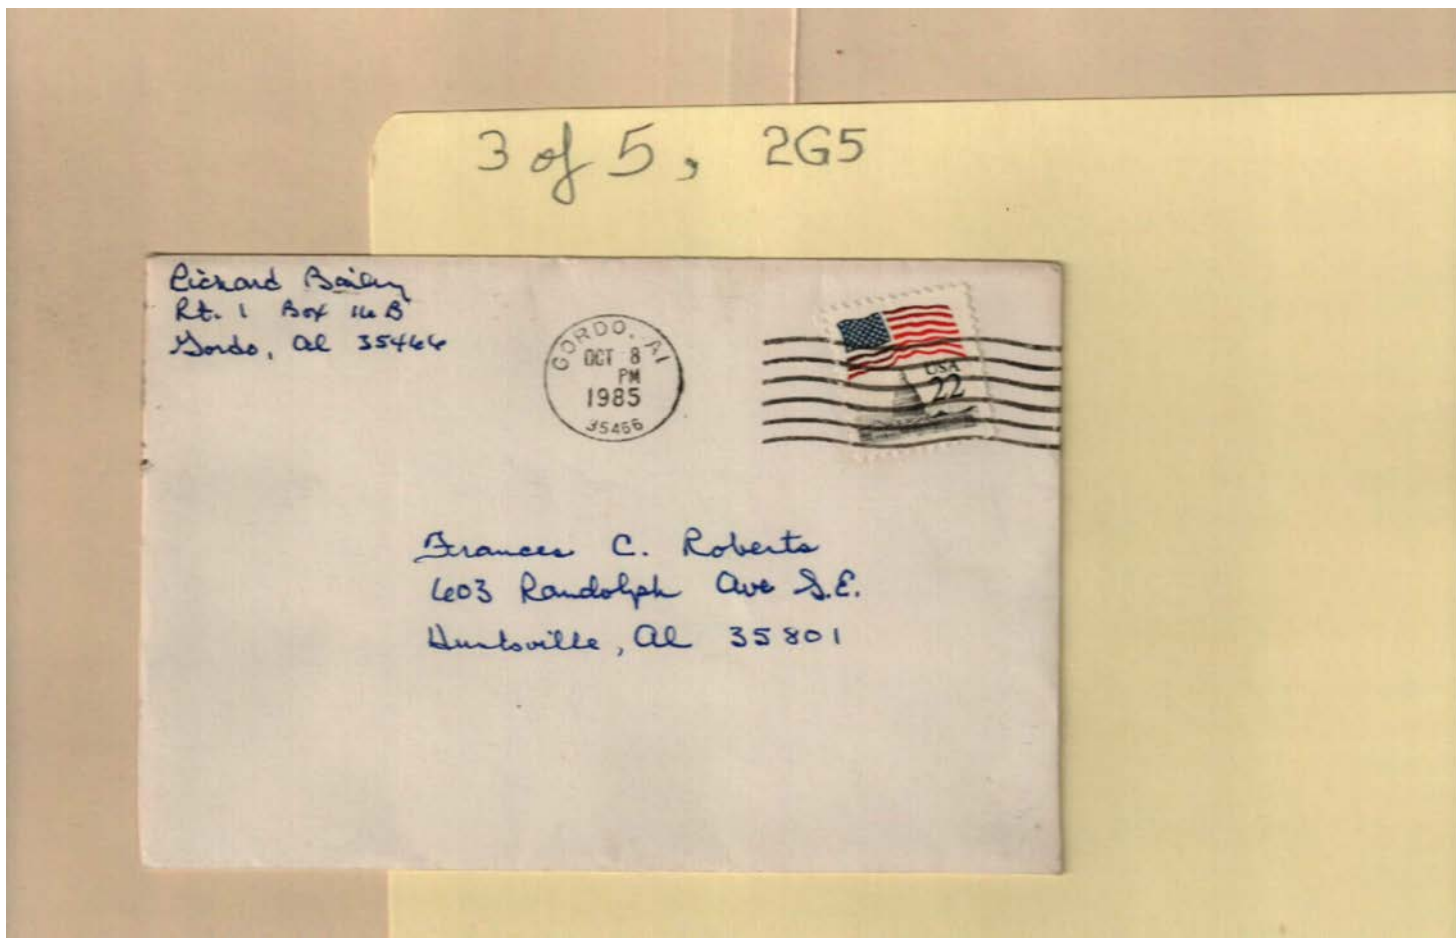 3 of 5, 2G5
Richard Bailey
Rt. 1 Box 16 B
Gordo, Al 35466
GORDO, Al
OCT 8
PM
1985
35466
USA
22
Frances C. Roberts
603 Randolph Ave S.E.
Huntsville, Al 35801